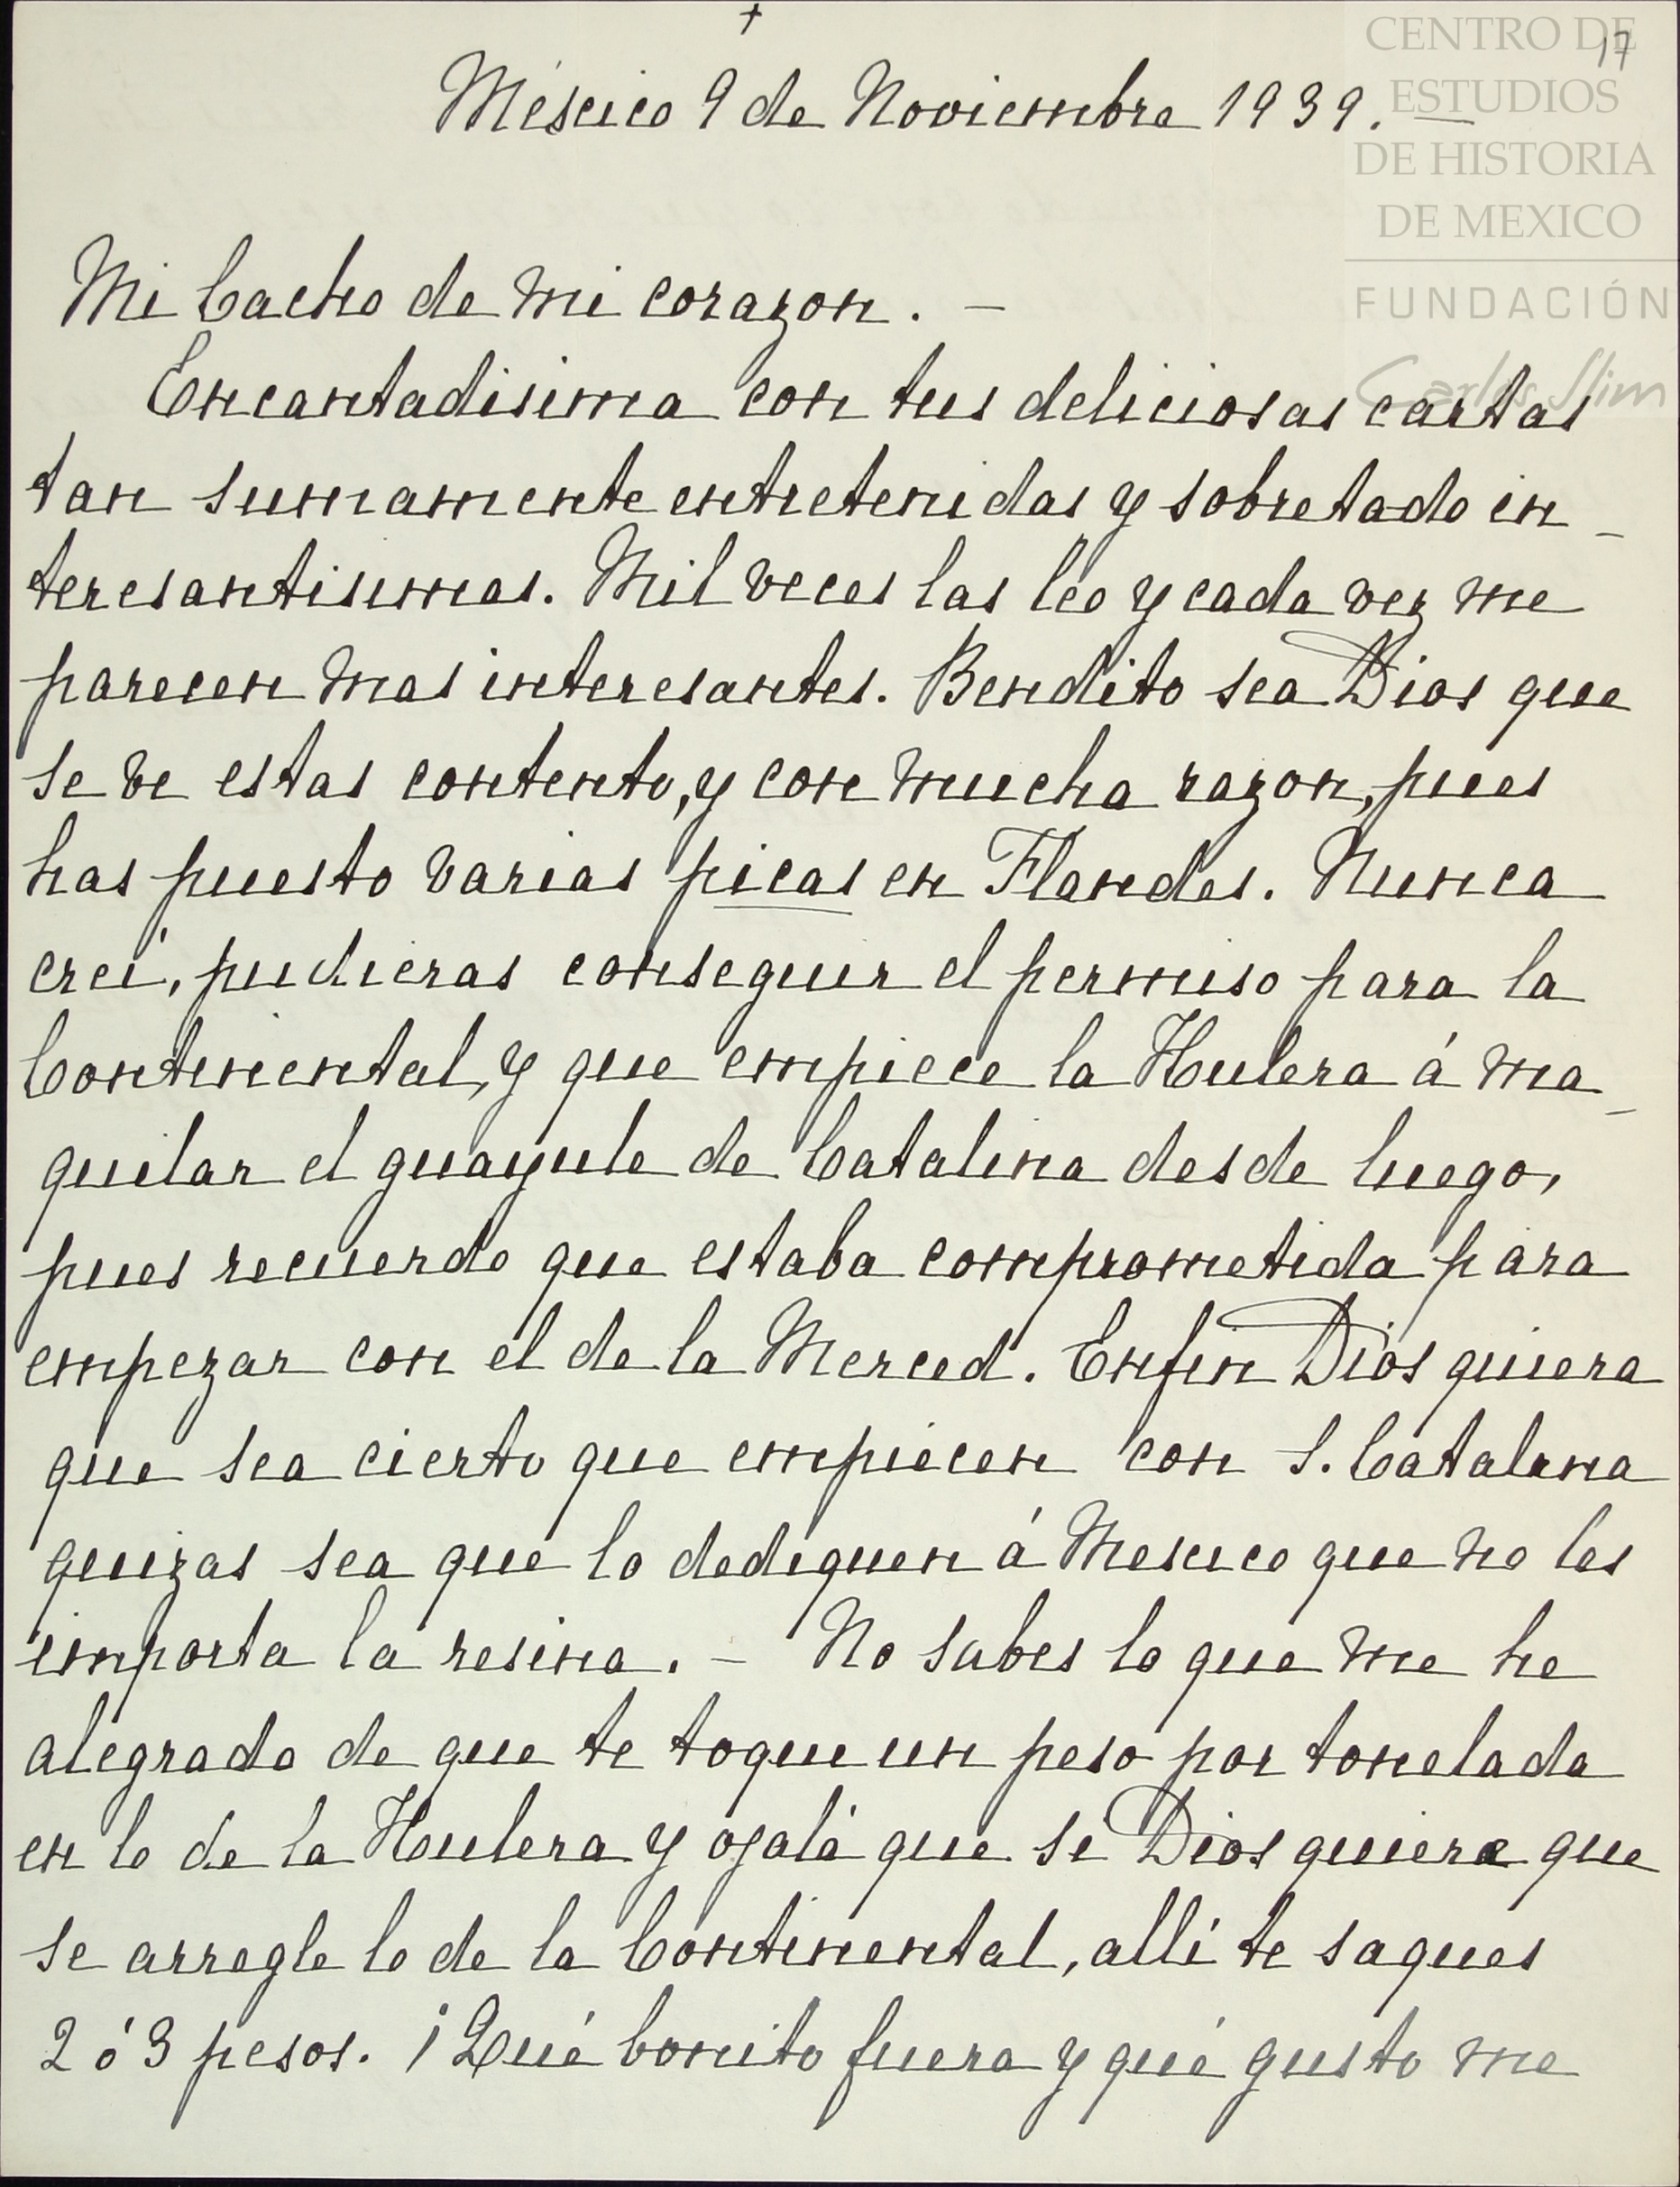 +
17
CENTRO DE
ESTUDIOS
DE HISTORIA
DE MEXICO
FUNDACIÓN
Carlos Slim
México 9 de Noviembre 1939.
Mi Cacho de mi corazon. —
Encantadisima con tus deliciosas cartas
tan sumamente entretenidas y sobretodo in-
teresantisimas. Mil veces las leo y cada vez me
parecen mas interesantes. Bendito sea Dios que
se ve estas contento, y con mucha razon, pues
has puesto varias picas en Flandes. Nunca
creí, pudieras conseguir el permiso para la
Continental, y que empiece la Hulera á ma-
quilar el guayule de Catalina desde luego,
pues recuerdo que estaba comprometida para
empezar con el de la Merced. Enfin Dios quiera
que sea cierto que empiecen con S. Catalina
quizas sea que lo dediquen á Mexico que no les
importa la resina. — No sabes lo que me he
alegrado de que te toque un peso por tonelada
en lo de la Hulera y ojalá que si Dios quiere que
se arregle lo de la Continental, allí te saques
2 ó 3 pesos. ¡Qué bonito fuera y qué gusto me